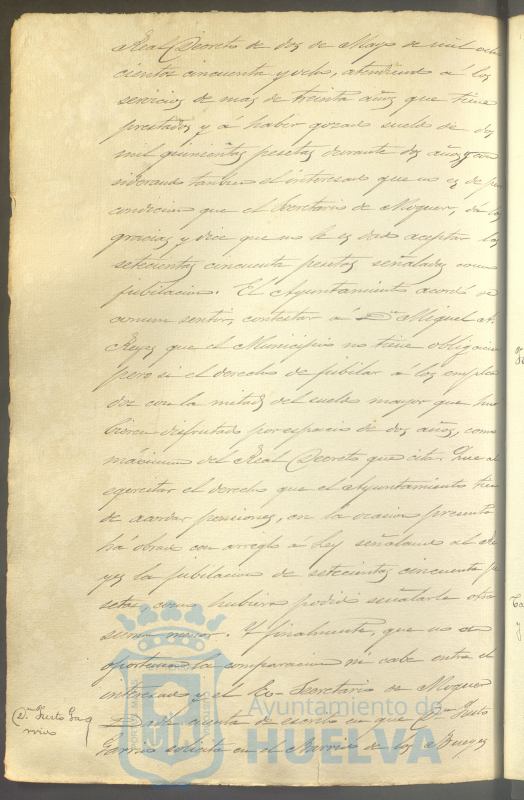 Real Decreto de dos de Mayo de mil ocho
cientos cincuenta y ocho, atendiendo a los
servicios de mas de treinta años que tiene
prestados y á haber gozado sueldo de dos
mil quinientas pesetas durante dos años y con
siderando tambien el interesado que no es de peor
condicion que el Secretario de Moguer, dá las
gracias y dice que no le es dado aceptar las
setecientas cincuenta pesetas señaladas como
jubilacion. El Ayuntamiento acordó de
comun sentir, contestar á Dn Miguel
Reyes que el Municipio no tiene obligacion
pero si el derecho de jubilar á los emplea
dos con la mitad del sueldo mayor que hu
bieren disfrutado por espacio de dos años, como
máximum del Real Decreto que cita. Que al
egercitar el derecho que el Ayuntamiento tiene
de acordar pensiones, en la ocasion presente
há obrado con arreglo a Ley señalando al Re
yes la jubilacion de setecientas cincuenta pe
setas, como hubiera podido señalarle otra
suma menor. Y finalmente, que no es
oportuna la comparacion ni cabe entre el
interesado y el Ex-Secretario de Moguer
Dn Justo Ga
rrido
dió cuenta de escrito en que Dn Justo
Garrido solicita en el Barrio de los
Ayuntamiento de
HUELVA